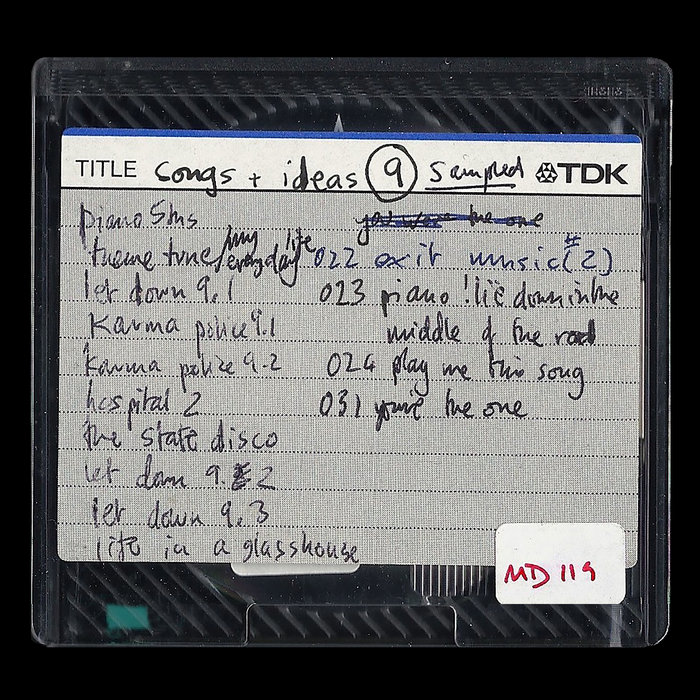 TITLE songs + ideas 9 sampled TDK
piano 5ths
theme tune/my everyday life
let down 9.1
karma police 9.1
karma police 9.2
hospital 2
the state disco
let down 9.2
let down 9.3
life in a glasshouse
you were the one
022 exit music (# 2)
023 piano ! lie down in the
middle of the road
024 play me this song
031 you're the one
MD 119